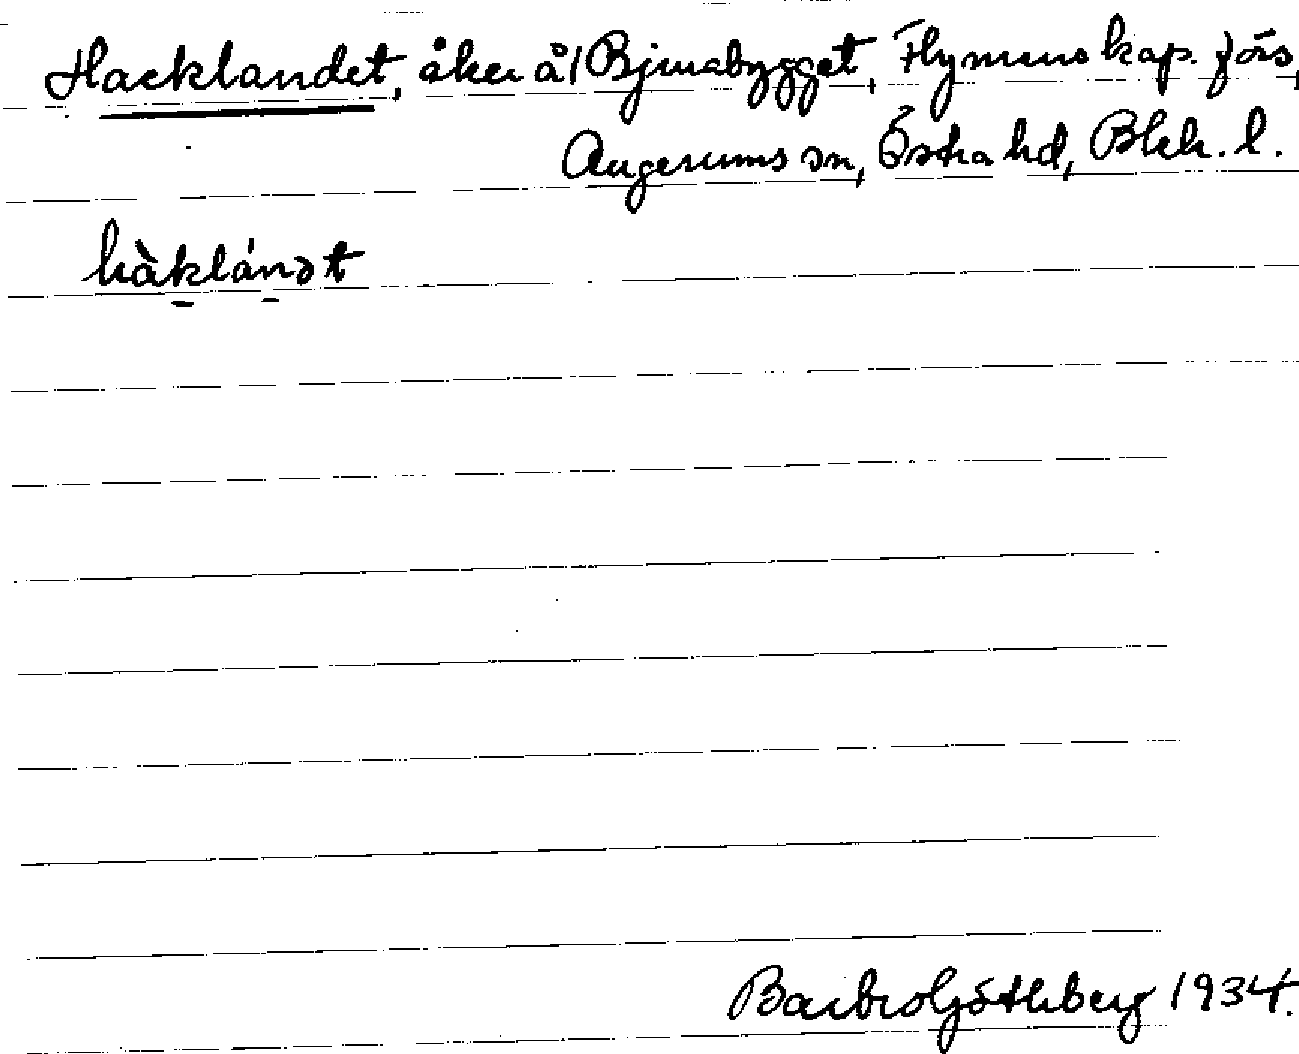 Hacklandet, åker å 1 Björnabygget, Flymens kap. förs,
Augerums sn, Östra hd, Blek. l.
hàklánət
Barbro Göthberg 1934.